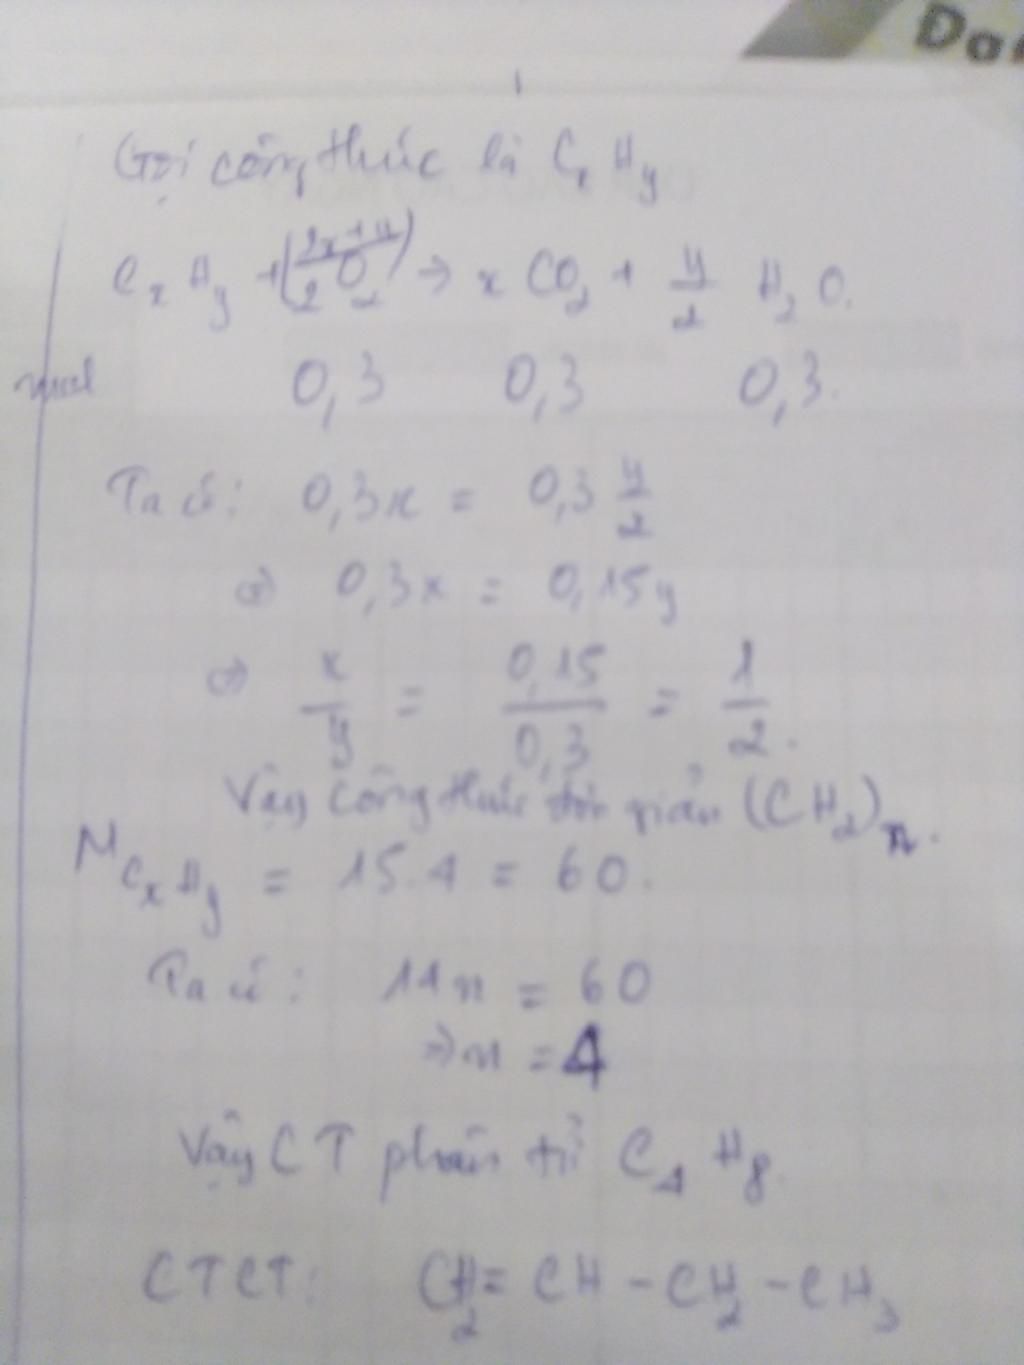 Da
Gọi công thức là CxHy
CxHy + (2x+y/2 O2) → x CO2 + y/2 H2O.
mol 0,3 0,3 0,3.
Ta có: 0,3x = 0,3 y/2
⇒ 0,3x = 0,15y
⇒ x/y = 0,15/0,3 = 1/2.
Vậy công thức đơn giản (CH2)n.
MCxHy = 15.4 = 60.
Ta có: 14n = 60
⇒ n = 4
Vậy CT phân tử C4H8.
CTCT: CH2 = CH - CH2 - CH3